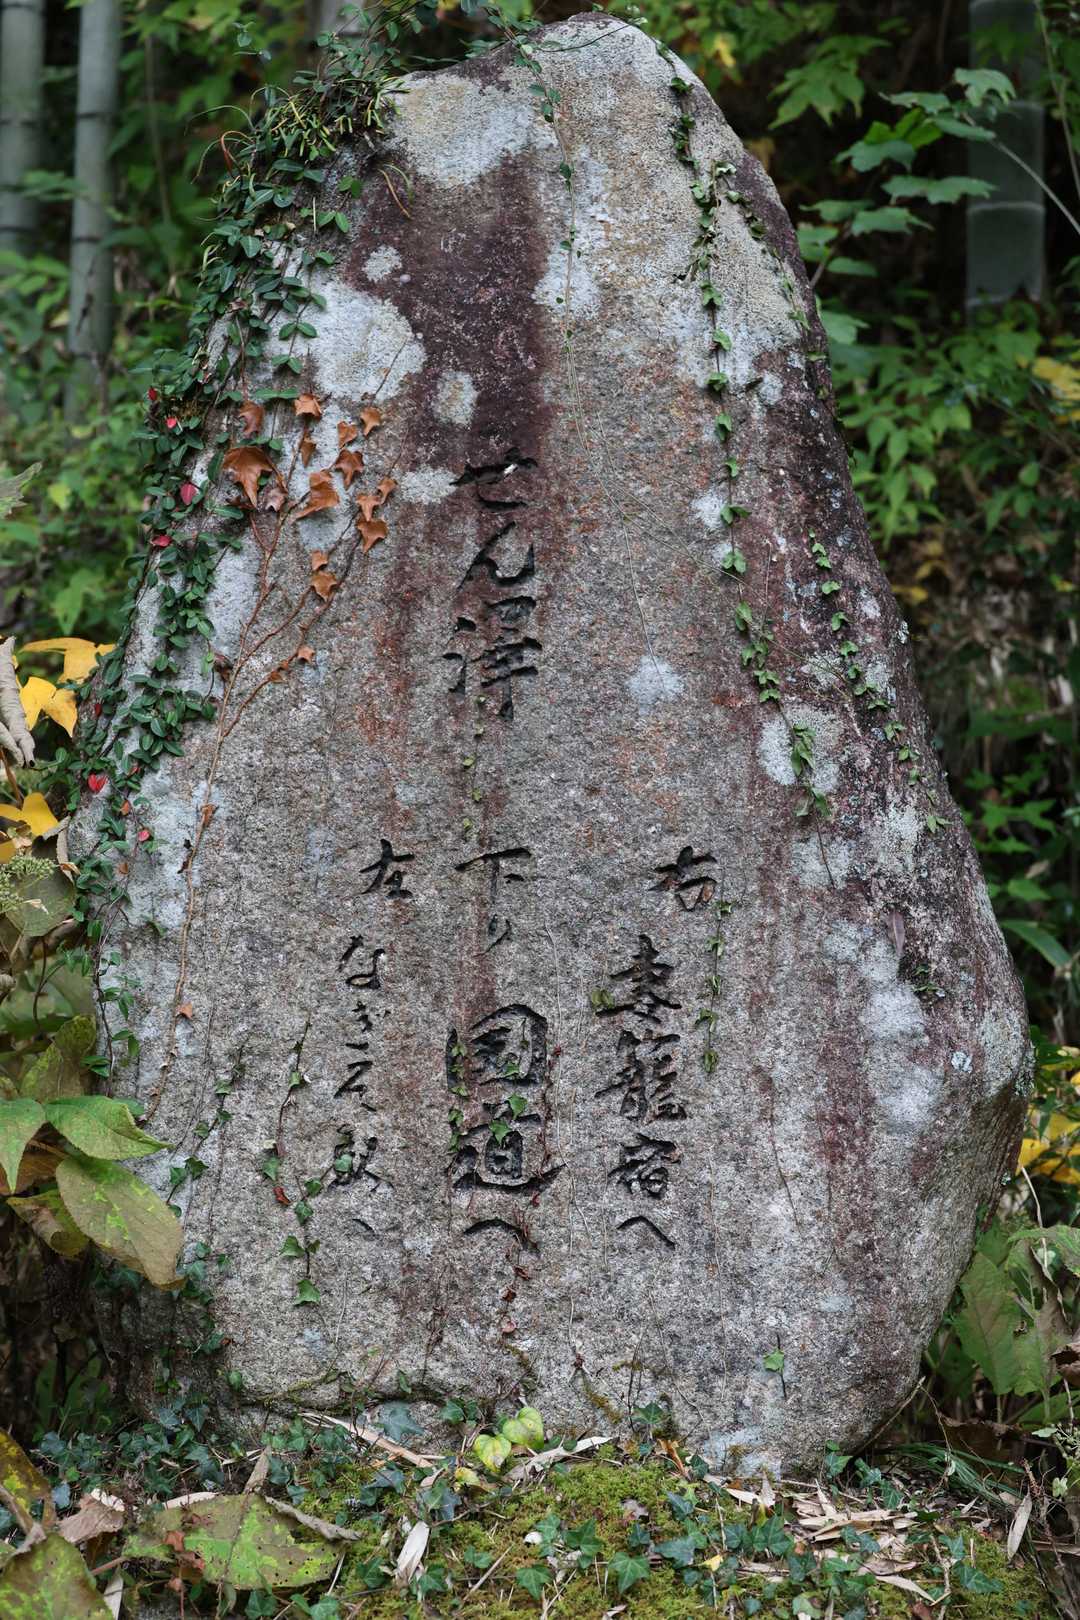 せん澤
右 妻籠宿へ
下り 國道へ
左 なぎそ駅へ